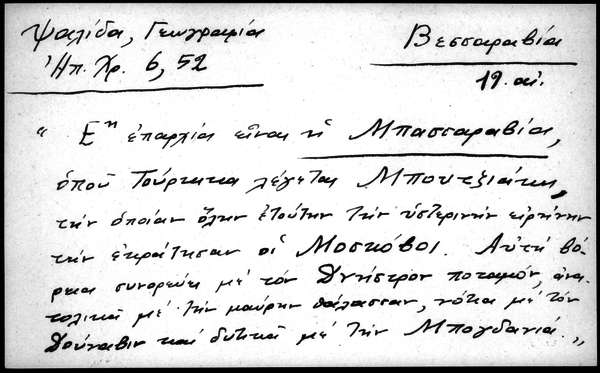 Ψαλίδα, Γεωγραφία
Βεσσαραβία
Ἠπ. Χρ. 6, 52
19. αἰ.
" Εη ἐπαρχία εἶναι ἡ Μπασσαραβία,
ὁποῦ Τούρκικα λέγεται Μπουτζιάκι,
τὴν ὁποίαν ὅλην ἐτούτην τὴν ὑστερινὴν εἰρήνην
τὴν ἐκράτησαν οἱ Μοσκόβοι. Αὐτὴ βό-
ρεια συνορεύει μὲ τὸν Δνήστρον ποταμόν, ἀνα-
τολικὰ μὲ τὴν μαύρην θάλασσαν, νότια μὲ τὸν
Δούναβιν καὶ δυτικὰ μὲ τὴν Μπογδανιά. "